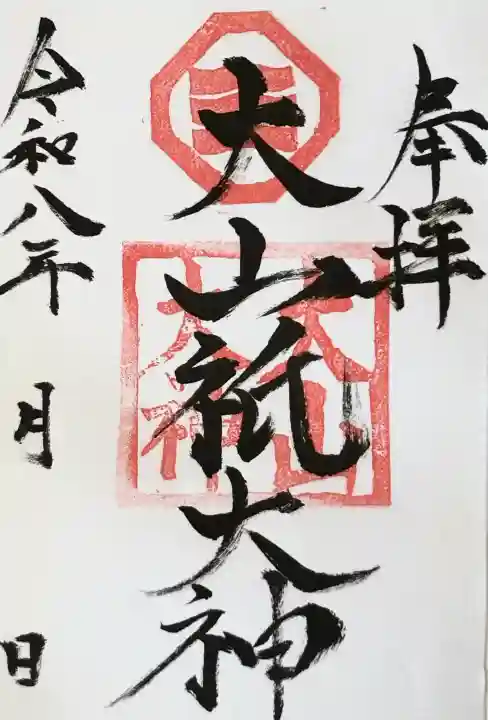 奉拝
大山祇大神
令和八年
月
日